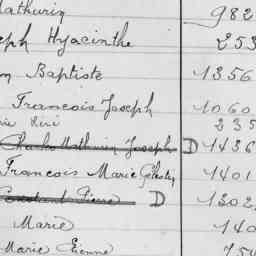 Mathurin 982
Joseph Hyacinthe 253
Baptiste 1356
Francois Joseph 1060
235
Charles Mathurin Joseph D 1436
Francois Marie Célestin 1401
Constant Pierre D 1302
Marie 140
Marie Etienne 754